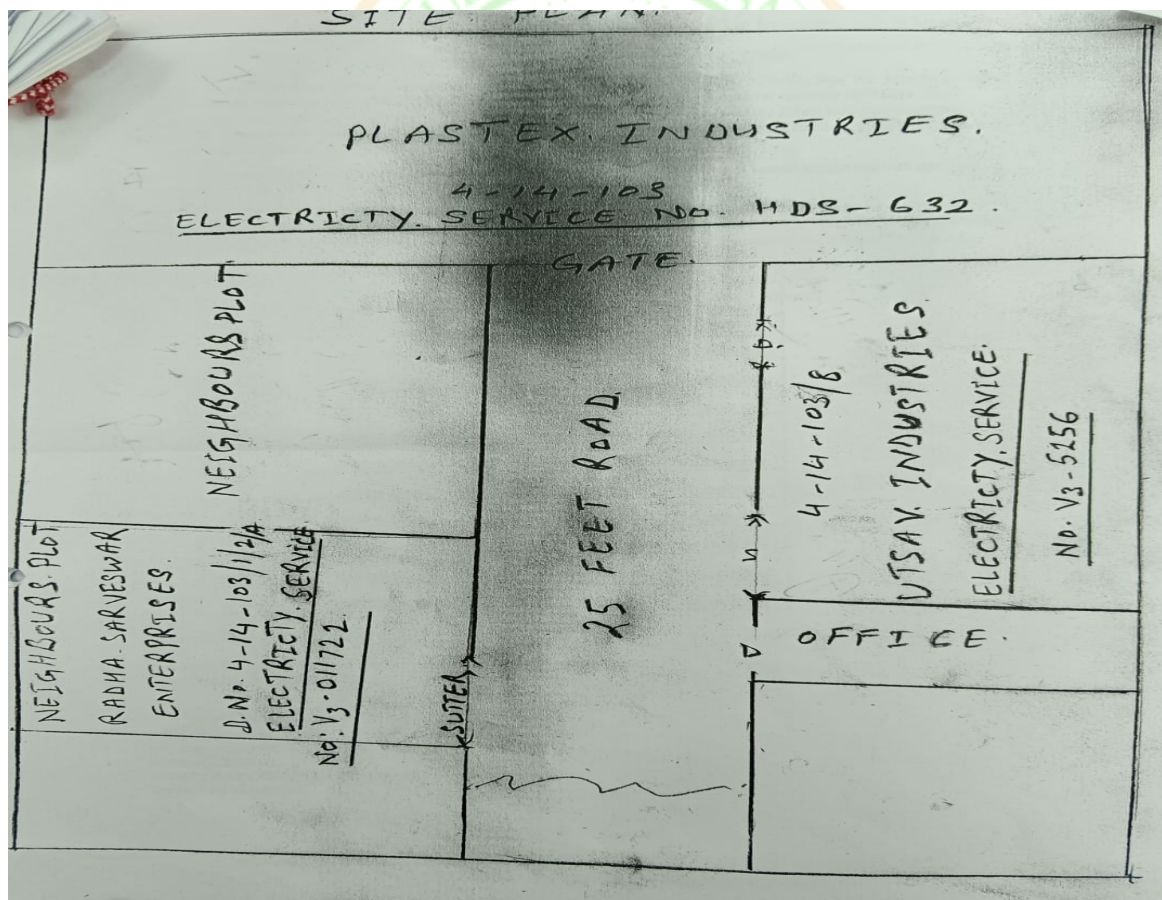 SITE PLAN.
PLASTEX. INDUSTRIES.
4-14-103
ELECTRICTY. SERVICE NO. HDS-632.
GATE.
NEIGHBOURS PLOT
NEIGHBOURS. PLOT
RADHA. SARVESWAR
ENTERPRISES.
D.No. 4-14-103/1/2/A
ELECTRICTY. SERVICE
No: V3-011722
SUTTER
25 FEET ROAD.
4-14-103/8
UTSAV. INDUSTRIES.
ELECTRICTY. SERVICE.
No. V3-5256
OFFICE.